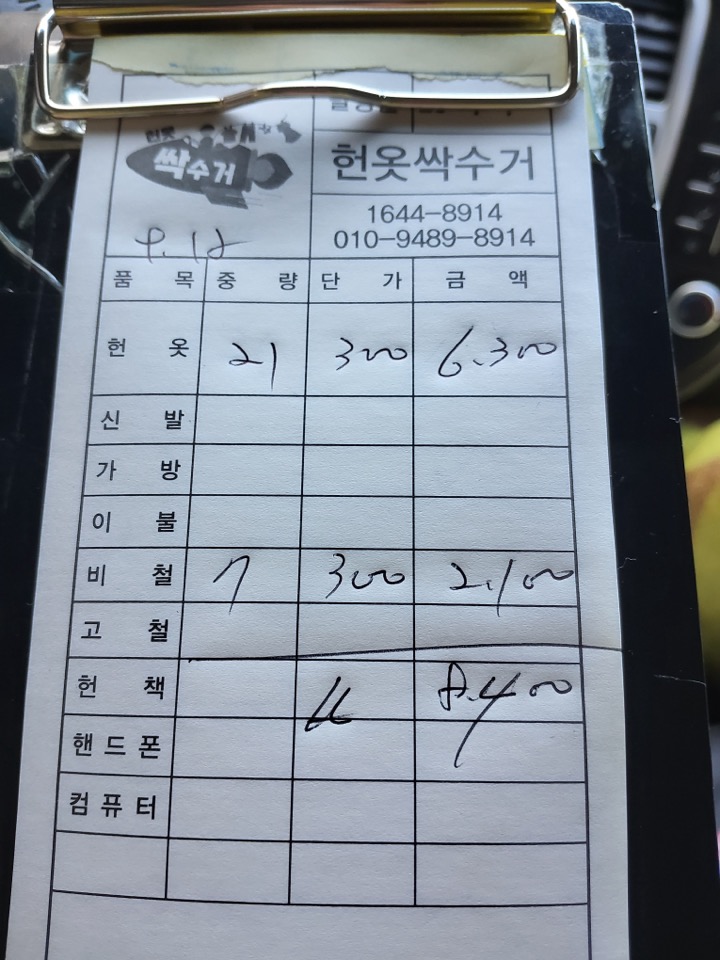 헌옷
싹수거
헌옷싹수거
1644-8914
010-9489-8914
9.12
품 목 중 량 단 가 금 액
헌 옷 21 300 6.300
신 발
가 방
이 불
비 철 7 300 2.100
고 철
헌 책 8.400
핸드폰
컴퓨터